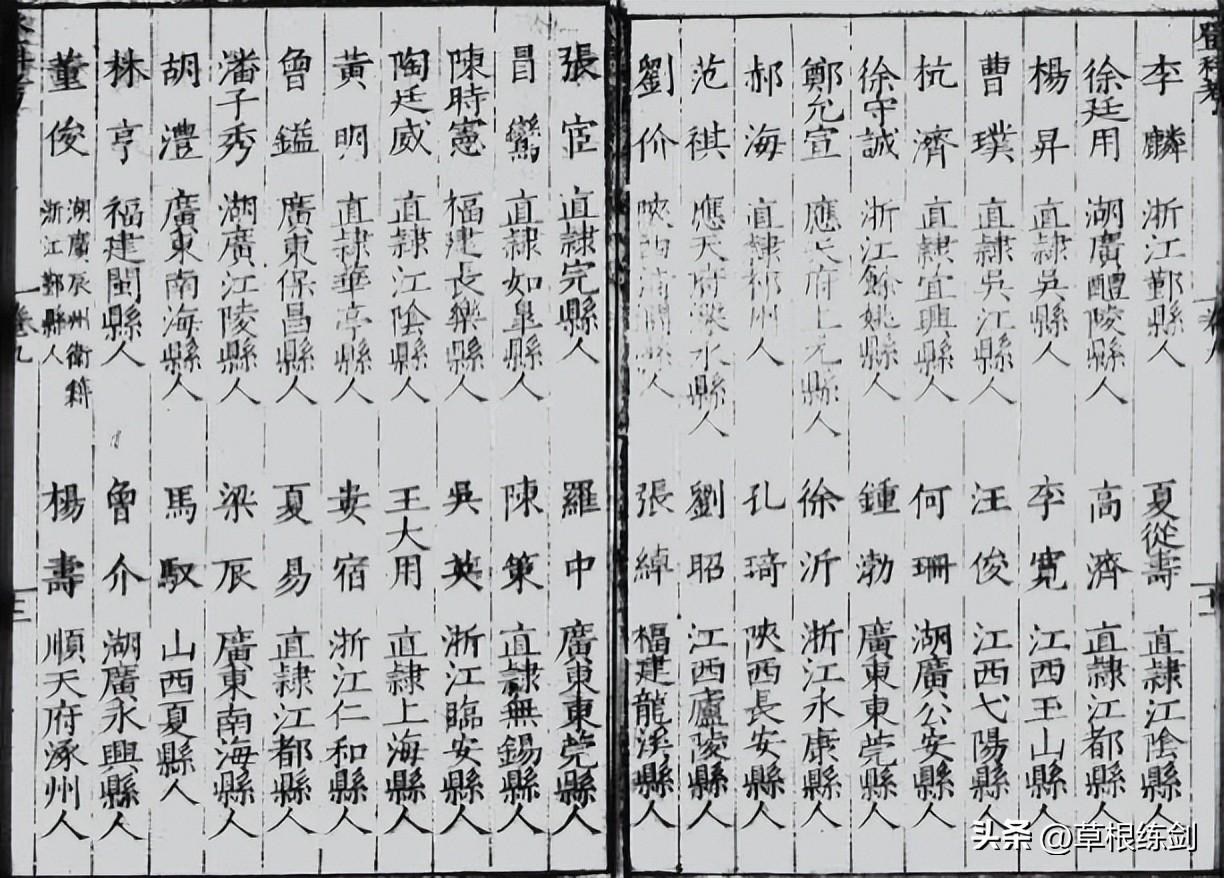 登科考
李麟 浙江鄞縣人 夏從壽 直隸江陰縣人
徐廷用 湖廣醴陵縣人 高濟 直隸江都縣人
楊昇 直隸吳縣人 李寬 江西玉山縣人
曹璞 直隸吳江縣人 汪俊 江西弋陽縣人
杭濟 直隸宜興縣人 何珊 湖廣公安縣人
徐守誠 浙江餘姚縣人 鍾渤 廣東東莞縣人
鄭允宣 應天府上元縣人 徐沂 浙江永康縣人
郝海 直隸祁州人 孔琦 陝西長安縣人
范祺 應天府溧水縣人 劉昭 江西廬陵縣人
劉价 陝西縣人 張綽 福建龍溪縣人
張宦 直隸完縣人 羅中 廣東東莞縣人
冒鸞 直隸如皐縣人 陳策 直隸無錫縣人
陳時憲 福建長樂縣人 吳英 浙江臨安縣人
陶廷威 直隸江陰縣人 王大用 直隸上海縣人
黃明 直隸華亭縣人 婁宿 浙江仁和縣人
魯鎰 廣東保昌縣人 夏易 直隸江都縣人
潘子秀 湖廣江陵縣人 梁辰 廣東南海縣人
胡澧 廣東南海縣人 馬馭 山西夏縣人
株亨 福建閩縣人 魯介 湖廣永興縣人
董俊 湖廣辰州衛籍 浙江鄞縣人 楊壽 順天府涿州人
卷九 三
头条 @草根练剑